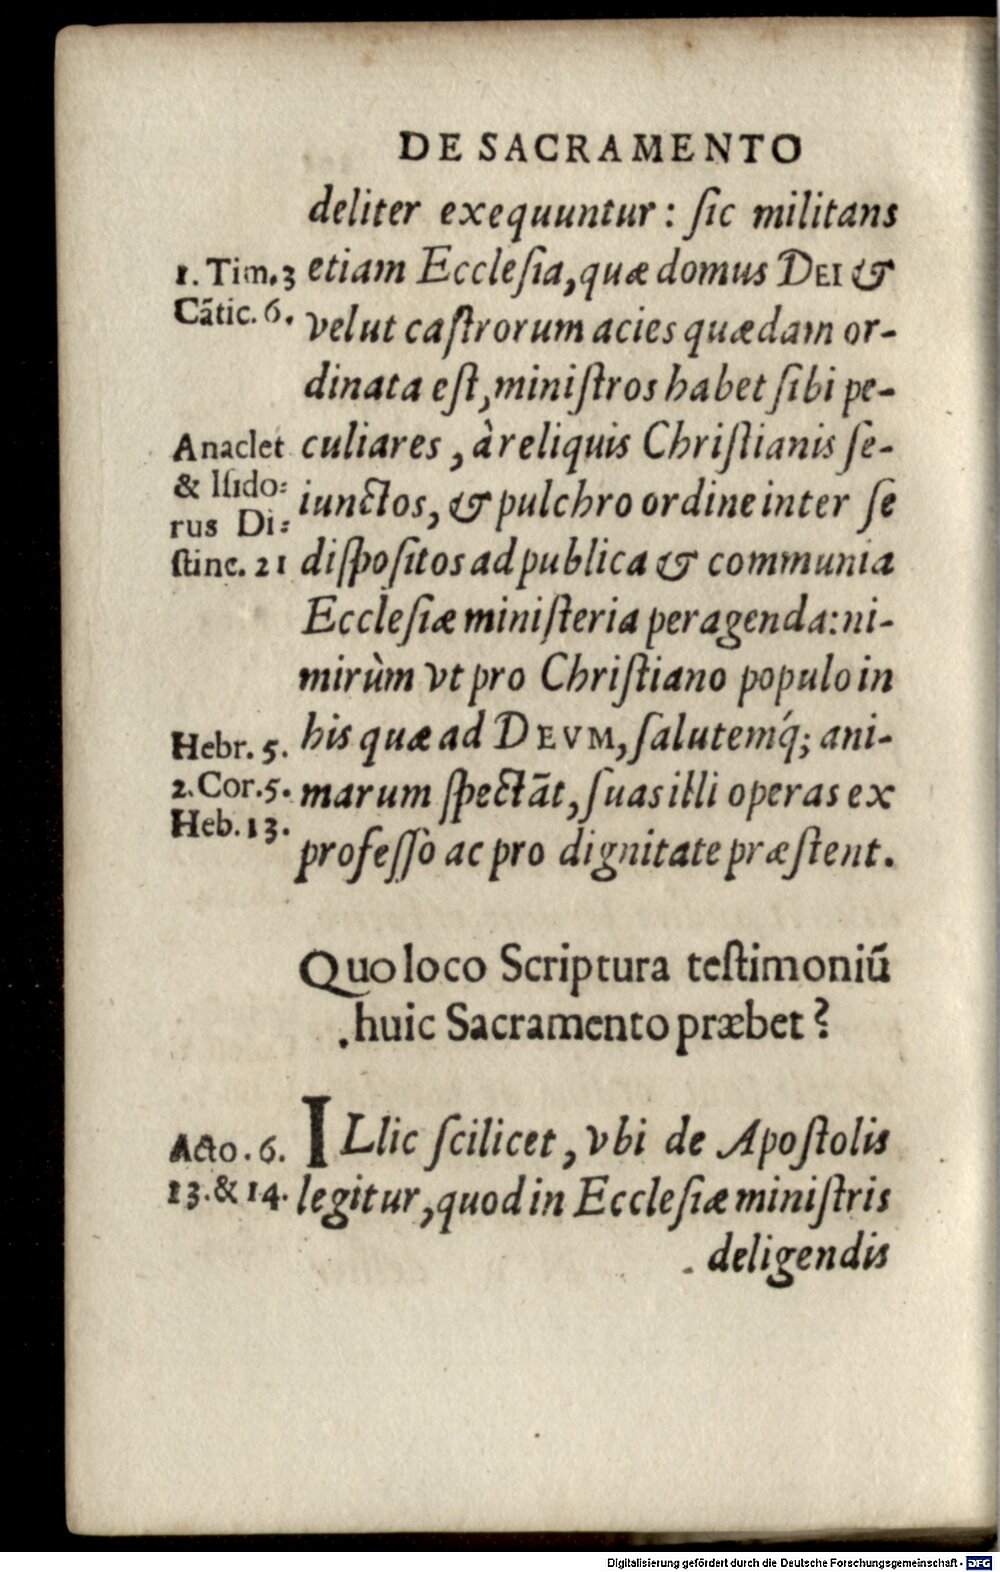 DE SACRAMENTO
deliter exequuntur : ſic militans
1. Tim. 3
etiam Eccleſia, quæ domus DEI &
Cãtic. 6.
velut caſtrorum acies quædam or-
dinata eſt, miniſtros habet ſibi pe-
Anaclet
culiares, à reliquis Chriſtianis ſe-
& Iſido:
iunctos, & pulchro ordine inter ſe
rus Di:
ſtinc. 21
diſpoſitos ad publica & communia
Eccleſiæ miniſteria peragenda: ni-
mirùm vt pro Chriſtiano populo in
Hebr. 5.
his quæ ad DEVM, ſalutemq́; ani-
2. Cor. 5.
marum ſpectãt, ſuas illi operas ex
Heb. 13.
profeſſò ac pro dignitate præſtent.
Quo loco Scriptura teſtimoniũ
huic Sacramento præbet?
Acto. 6.
ILlic ſcilicet, vbi de Apoſtolis
13. & 14.
legitur, quod in Eccleſiæ miniſtris
deligendis
Digitalisierung gefördert durch die Deutsche Forschungsgemeinschaft - DFG